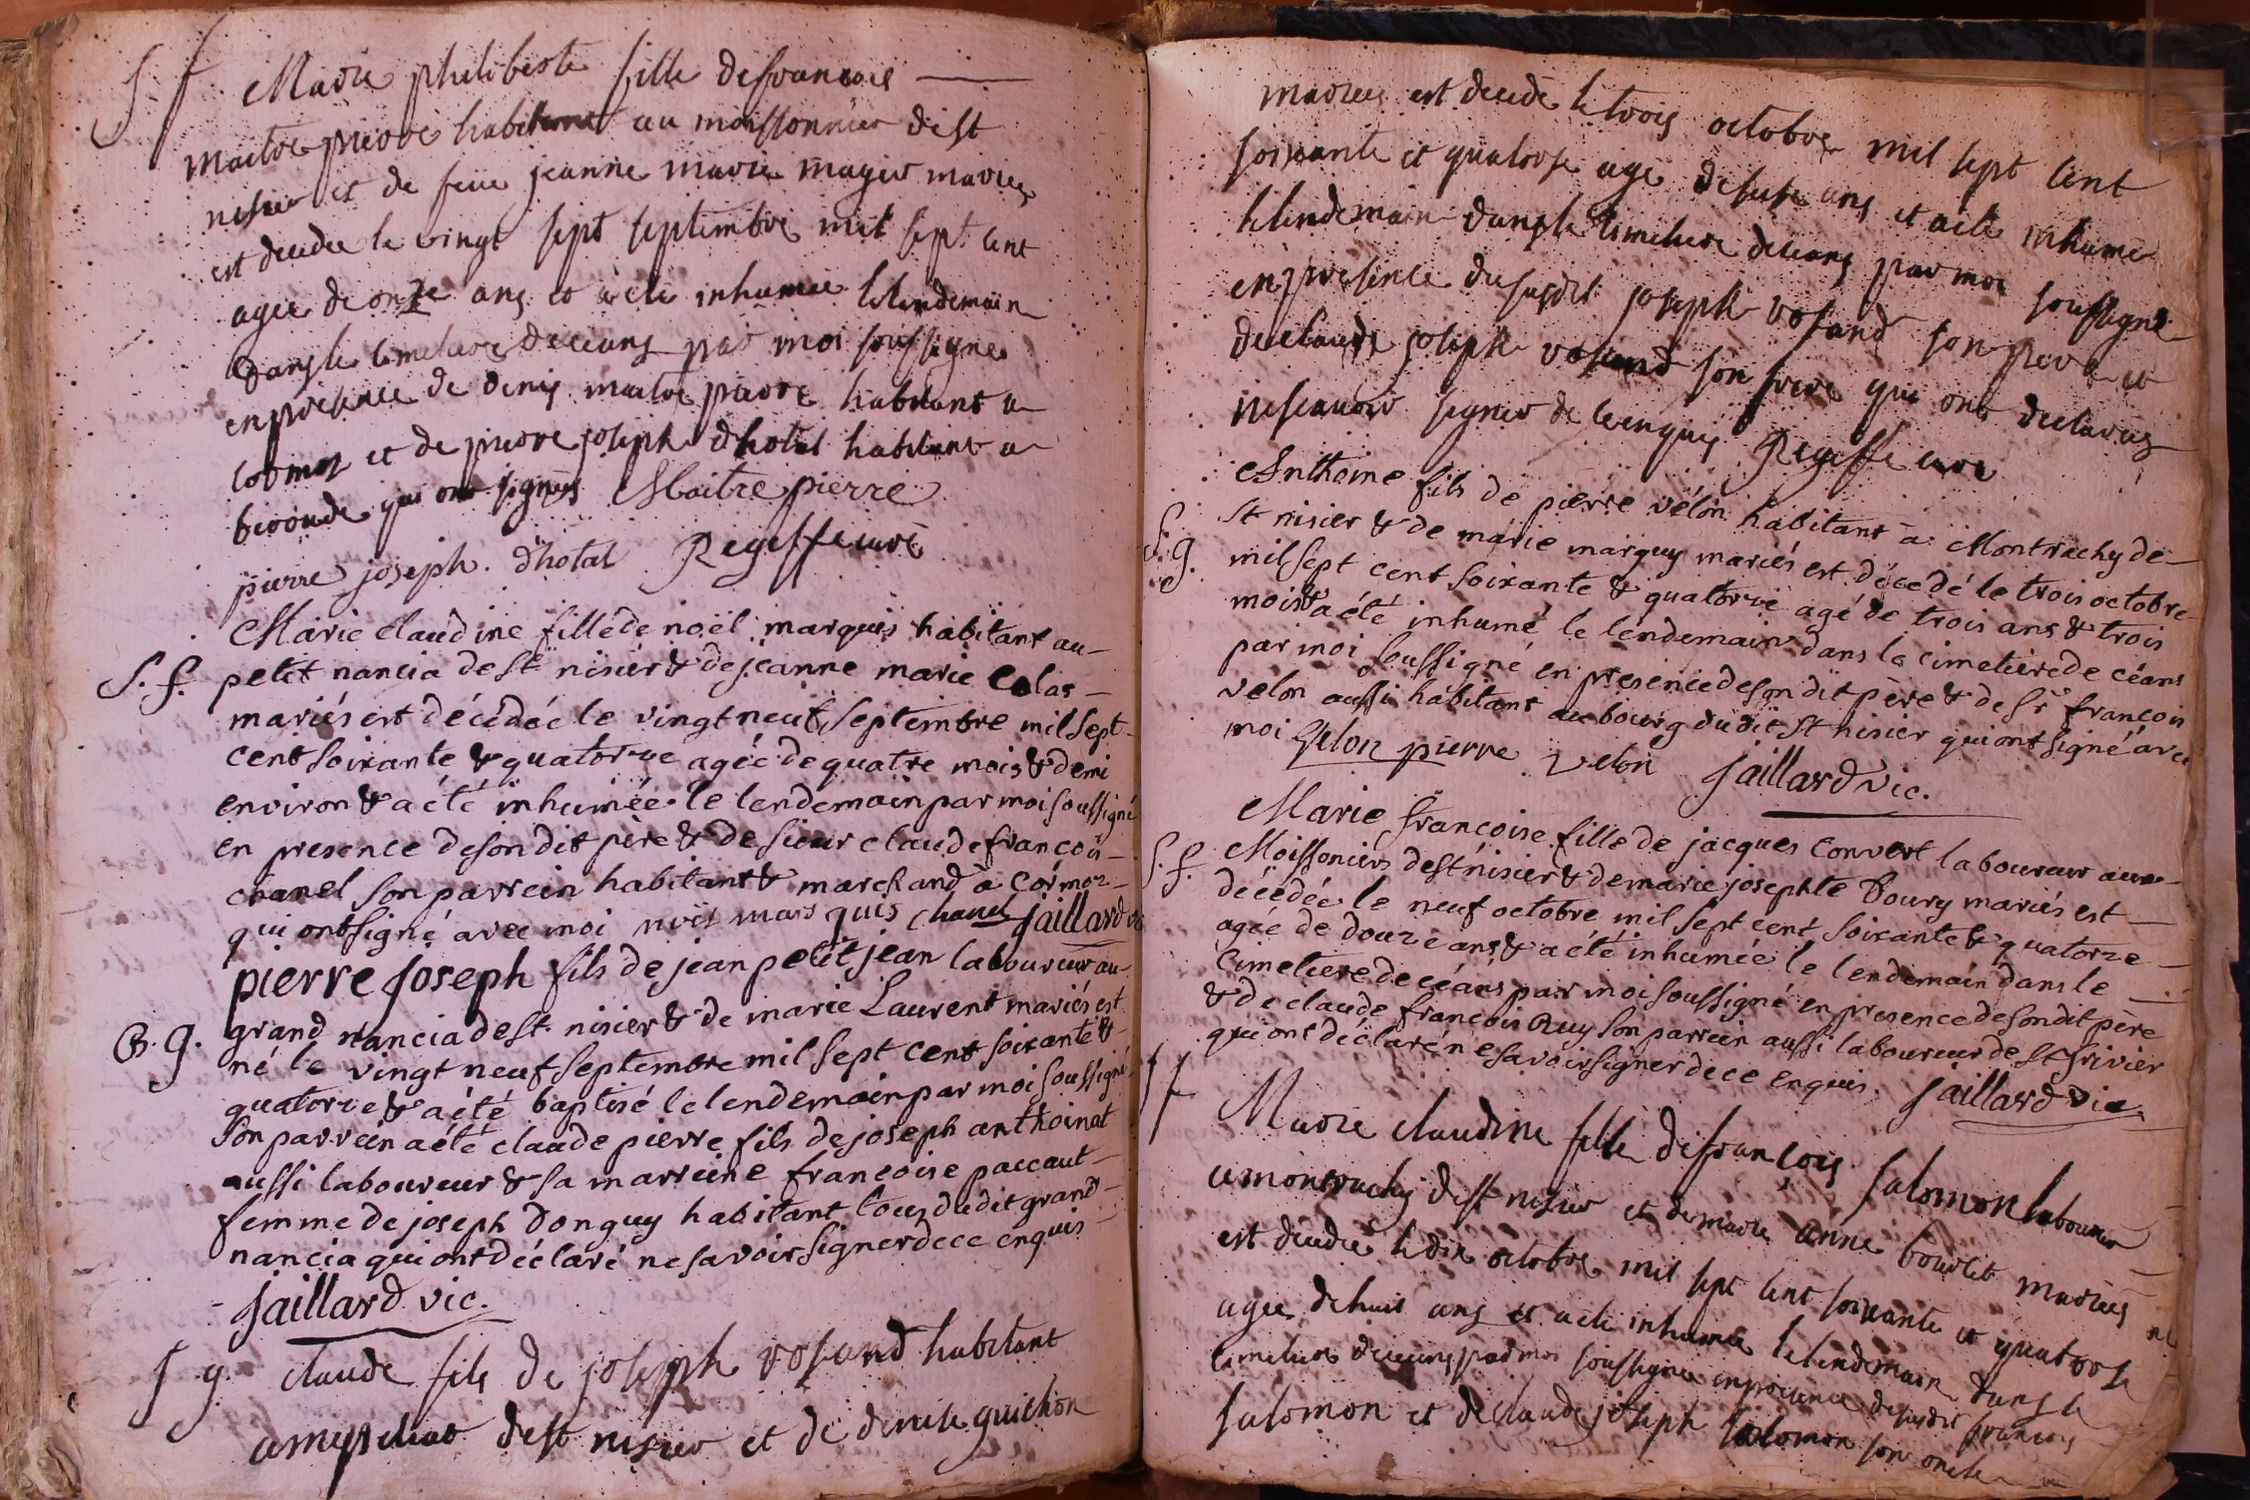 S. f. Marie philiberte fille de francois
maitre pierre habitant au moissonnier de st
nisier et de feue jeanne marie mugin mariés
est decedee le vingt sept septembre mil sept cent
agee de onze ans et a ete inhumee le lendemain
dans le cimetiere de ceans par moi soussigné
en presence de denis maitre pierre habitant a
cormoz et de pierre joseph dhotal habitant a
qui ont signés Maitre pierre
pierre joseph. dhotal Regeffe curé
Marie claudine fille de noël marquis habitant au
S. f. petit nancia de st nisier & de jeanne marie Colas
mariés est décédée le vingt neuf septembre mil sept
cent soixante & quatorze agée de quatre mois & demi
environ & a été inhumée le lendemain par moi soussigné
en presence de son dit père & de sieur claude francois
chanel son parrein habitant & marchand à Cormoz
qui ont signé avec moi noël marquis chanel jaillard vic
pierre joseph fils de jean petit jean laboureur au
B. g. grand nancia de st nisier & de marie Laurent mariés est
né le vingt neuf septembre mil sept cent soixante &
quatorze & a été baptisé le lendemain par moi soussigné
son parrein a été claude pierre fils de joseph anthoinat
aussi laboureur & sa marreine francoise paccaut
femme de joseph Donguy habitant tous dudit grand
nancia qui ont déclaré ne savoir signer de ce enquis
jaillard vic.
S g. claude fils de joseph vosand habitant
de st nisier et de denise guichon
mariés est decedé le trois octobre mil sept cent
soixante et quatorze agé de ans et a ete inhumé
le lendemain dans le cimetiere de ceans par moi soussigné
en presence du susdit joseph vosand son pere et
de claude joseph vosand son frere qui ont declarés
ne scavoir signer de ce enquis Regeffe curé
Anthoine fils de pierre vélon habitant à Montrachy de
S. g. st nisier & de marie marguy mariés est décedé le trois octobre
mil sept cent soixante & quatorze agé de trois ans & trois
mois & a été inhumé le lendemain dans le cimetiere de céans
par moi soussigné en presence de son dit père & de sr francois
velon aussi habitant au bourg du dit st nisier qui ont signé avec
moi Velon pierre velon jaillard vic.
Marie francoise fille de jacques Convert laboureur aux
S. f. Moissoniers de st nisier & de marie josephte Boury mariés est
décédée le neuf octobre mil sept cent soixante & quatorze
agée de douze ans & a été inhumée le lendemain dans le
Cimetiere de céans par moi soussigné en presence de son dit père
& de claude francois Ruy son parrein aussi laboureur de st trivier
qui ont déclaré ne savoir signer de ce enquis. jaillard vic.
S f Marie claudine fille de francois salomon laboureur
a montrachy de st nisier et de marie anne bourlet mariés
est decedee le dix octobre mil sept cent soixante et quatorze
agee de huit ans et a ete inhumee le lendemain dans le
cimetiere de ceans par moi soussigné en presence du susdit francois
salomon et de claude joseph salomon son oncle